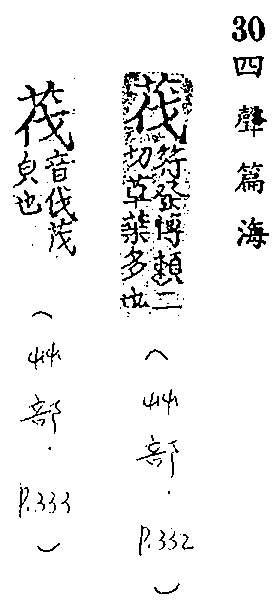 30 四聲篇海
茷 符發博賴二切草葉多也
（艸部．P.332）
茷 音伐茂皃也
（艸部．P.333）